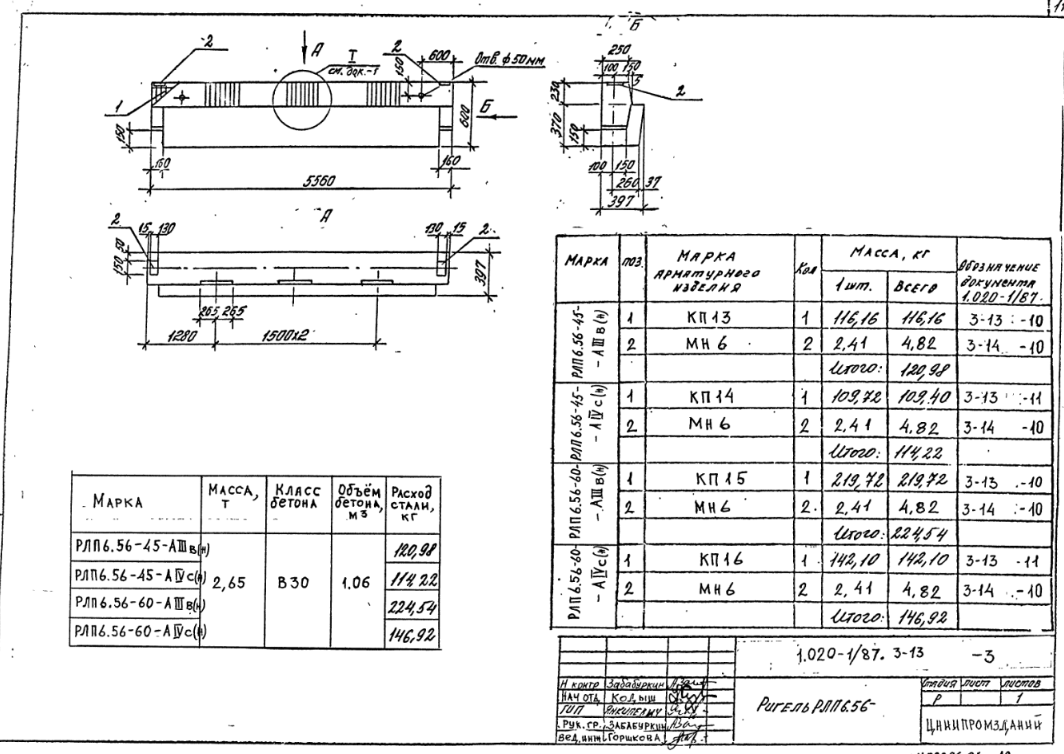 2
А
I
см. док.-1
2
600
Отв. ф 50 мм
150
1
150
600
Б
160
160
5560
Б
250
100 150
230
370
150
2
100 150
260 37
397
А
2
15 130
130 15
2
50
150
397
265 265
1280 1500х2
МАРКА ПОЗ. МАРКА АРМАТУРНОГО ИЗДЕЛИЯ Кол МАССА, КГ Обозначение документа 1.020-1/87.
1 шт. Всего
РЛП6.56-45-АIIIв(н)
1 КП13 1 116,16 116,16 3-13 -10
2 МН6 2 2,41 4,82 3-14 -10
Итого: 120,98
РЛП6.56-45-АIVс(н)
1 КП14 1 109,72 109,40 3-13 -11
2 МН6 2 2,41 4,82 3-14 -10
Итого: 114,22
РЛП6.56-60-АIIIв(н)
1 КП15 1 219,72 219,72 3-13 -10
2 МН6 2. 2,41 4,82 3-14 -10
Итого: 224,54
РЛП6.56-60-АIVс(н)
1 КП16 1 142,10 142,10 3-13 -11
2 МН6 2 2,41 4,82 3-14 -10
Итого: 146,92
МАРКА МАССА, Т КЛАСС бетона Объём бетона, м3 Расход стали, кг
РЛП6.56-45-АIIIв(н) 120,98
РЛП6.56-45-АIVс(н) 2,65 В30 1.06 114,22
РЛП6.56-60-АIIIв(н) 224,54
РЛП6.56-60-АIVс(н) 146,92
1.020-1/87. 3-13 -3
Н. контр Забабуркин
НАЧ ОТД. Колыш
ГИП
Рук. гр. Забабуркин
Вед. инж Горшкова
Ригель РЛП6.56-
Стадия Лист Листов
Р 1
ЦНИИПРОМЗДАНИЙ